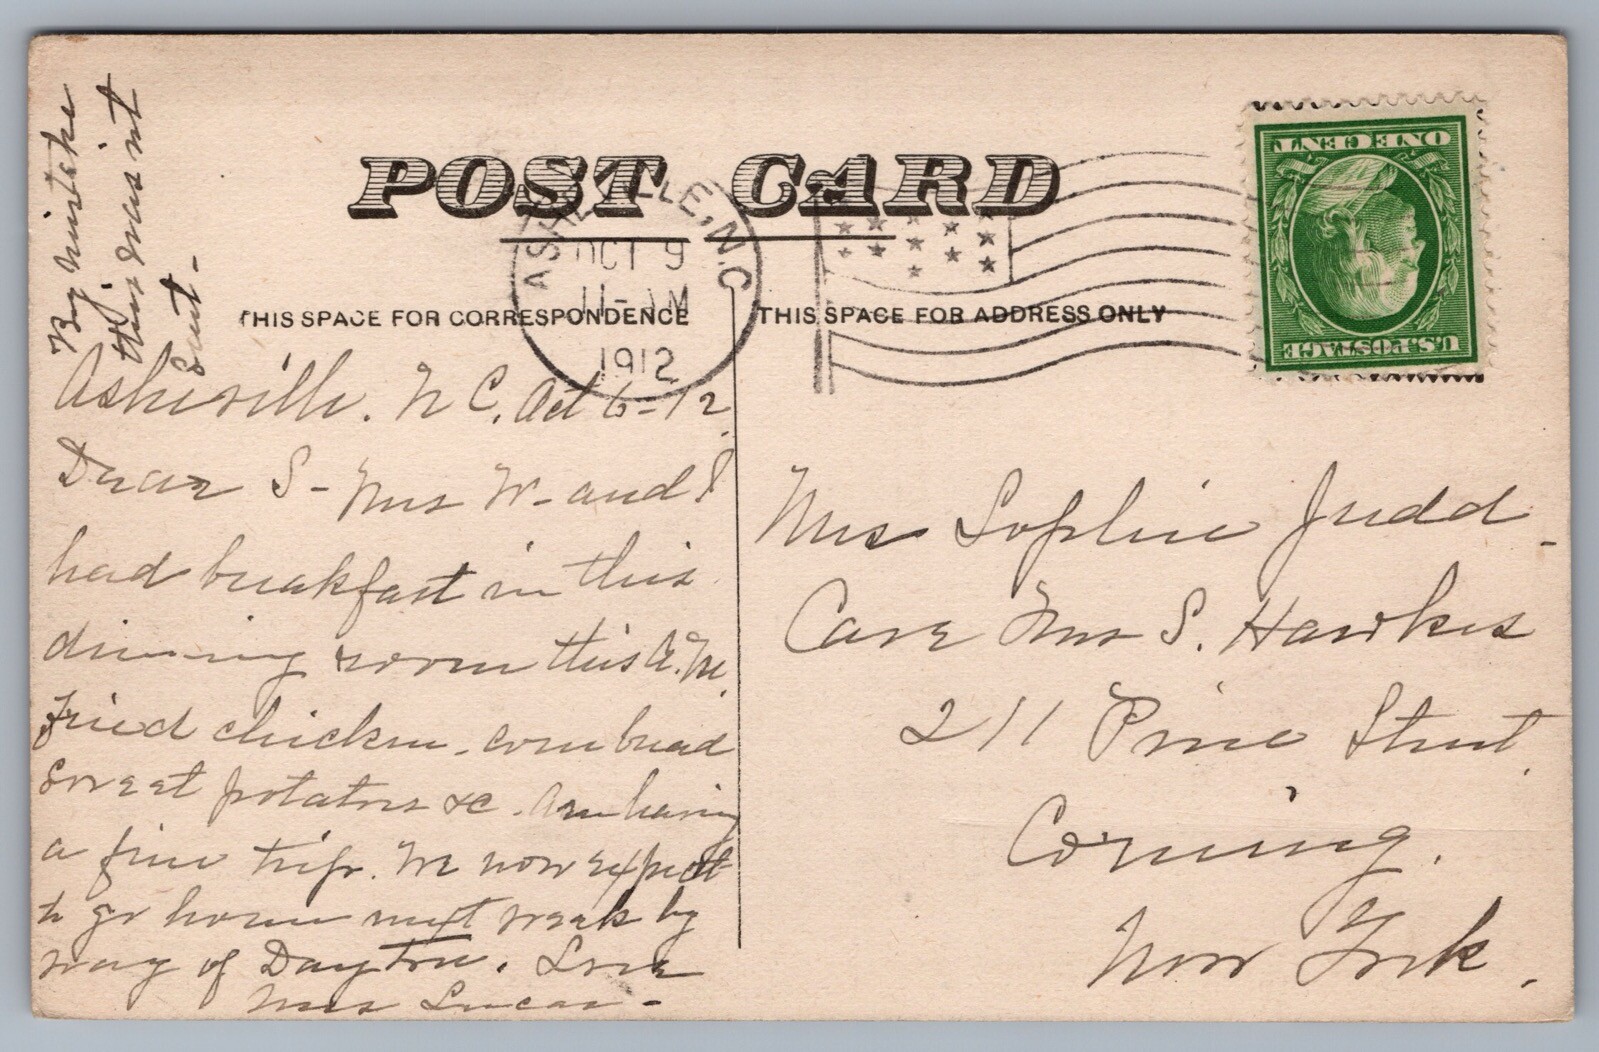 By mistake
this was int
sent -
POST CARD
ASHEVILLE, N.C.
OCT 9
11-AM
1912
ONE CENT
U.S. POSTAGE
THIS SPACE FOR CORRESPONDENCE
THIS SPACE FOR ADDRESS ONLY
Asheville. N C. Oct 6-12.
Dear S- Mrs W- and I
had breakfast in this
dinning room this A.M.
Fried chicken - corn bread
Sweet potatoes &c. Am having
a fine trip. We now expect
to go home next week by
way of Dayton. Love
Mrs Lucas -
Mrs Sophie Judd -
Care Mrs S. Hawkes
211 Pine Street.
Corning.
New York.